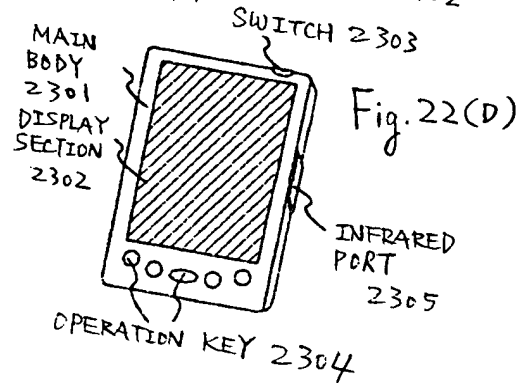 SWITCH 2303
MAIN
BODY
2301
DISPLAY
SECTION
2302
Fig. 22(D)
INFRARED
PORT
2305
OPERATION KEY 2304